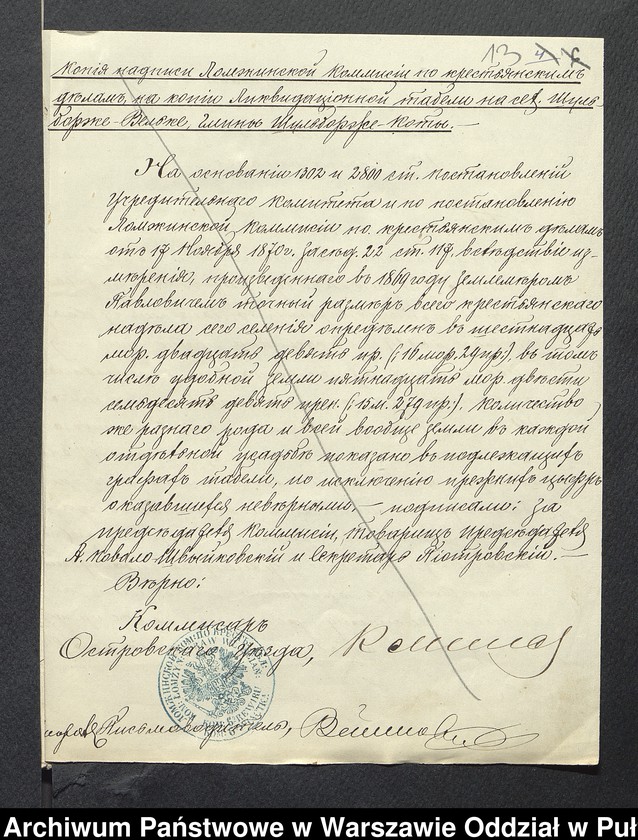 13 4
Копія надписи Ломжинской Коммисіи по крестьянскимъ
дѣламъ, на копіи Ликвидаціонной табели на сел. Шуль-
борже-Вельке, гмины Шульборже-Коты.—
На основаніи 1302 и 2800 ст. постановленій
Учредительнаго Комитета и по постановленію
Ломжинской Коммисіи по крестьянскимъ дѣламъ
отъ 17 Ноября 1870 г. засѣд. 22 ст. 117, вслѣдствіе из-
мѣренія, произведеннаго въ 1869 году землемѣромъ
Павловичемъ точный размѣръ всего крестьянскаго
надѣла сего селенія опредѣленъ въ шестнадцать
мор. двадцать девять пр. (:16 мор. 29 пр:) въ томъ
числѣ удобной земли пятнадцать мор. двѣсти
семьдесятъ девять прен. (:15 м. 279 пр:). Количество
же разнаго рода и всей вообще земли въ каждой
отдѣльной усадьбѣ показано въ подлежащихъ
графахъ табели, по исключенію прежнихъ цыфръ
оказавшихся невѣрными.— подписали: за
предсѣдателя Коммисіи, товарищъ предсѣдателя
А. Ковало-Швыйковскій и Секретарь Піотровскій.—
Вѣрно:
Коммисаръ
Островскаго Уѣзда,
Письмоводитель,
Archiwum Państwowe w Warszawie Oddział w Puł